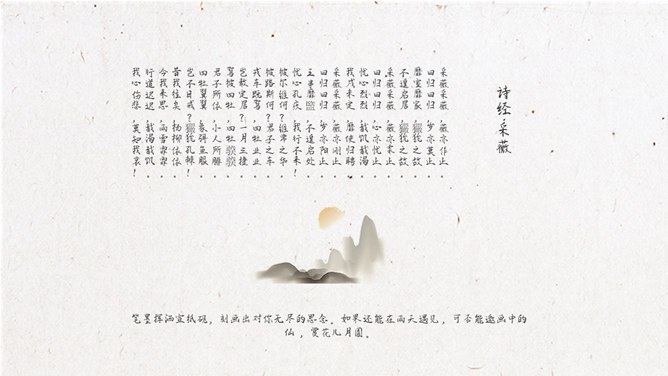 诗经 采薇
采薇采薇，薇亦作止。
曰归曰归，岁亦莫止。
靡室靡家，猃狁之故。
不遑启居，猃狁之故。
采薇采薇，薇亦柔止。
曰归曰归，心亦忧止。
忧心烈烈，载饥载渴。
我戍未定，靡使归聘。
采薇采薇，薇亦刚止。
曰归曰归，岁亦阳止。
王事靡盬，不遑启处。
忧心孔疚，我行不来！
彼尔维何？维常之华。
彼路斯何？君子之车。
戎车既驾，四牡业业。
岂敢定居？一月三捷。
驾彼四牡，四牡骙骙。
君子所依，小人所腓。
四牡翼翼，象弭鱼服。
岂不日戒？猃狁孔棘！
昔我往矣，杨柳依依。
今我来思，雨雪霏霏。
行道迟迟，载渴载饥。
我心伤悲，莫知我哀！
笔墨挥洒宣纸砚，刻画出对你无尽的思念。如果还能在雨天遇见，可否能邀画中的
仙，赏花儿月圆。